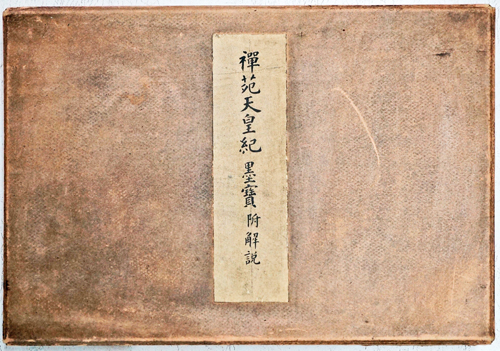 禪苑天皇紀墨寶附解說